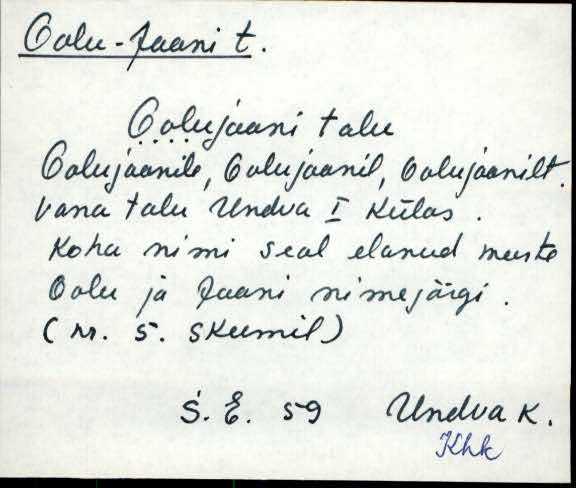 Oolu-Jaani t.
Oolujaani talu
Oolujaanile, Oolujaanil, Oolujaanilt.
Vana talu Undva I külas.
Koha nimi seal elanud meeste
Oolu ja Jaani nimejärgi.
(nr. 5. skeemil)
S. E. 59 Undva k.
Khk